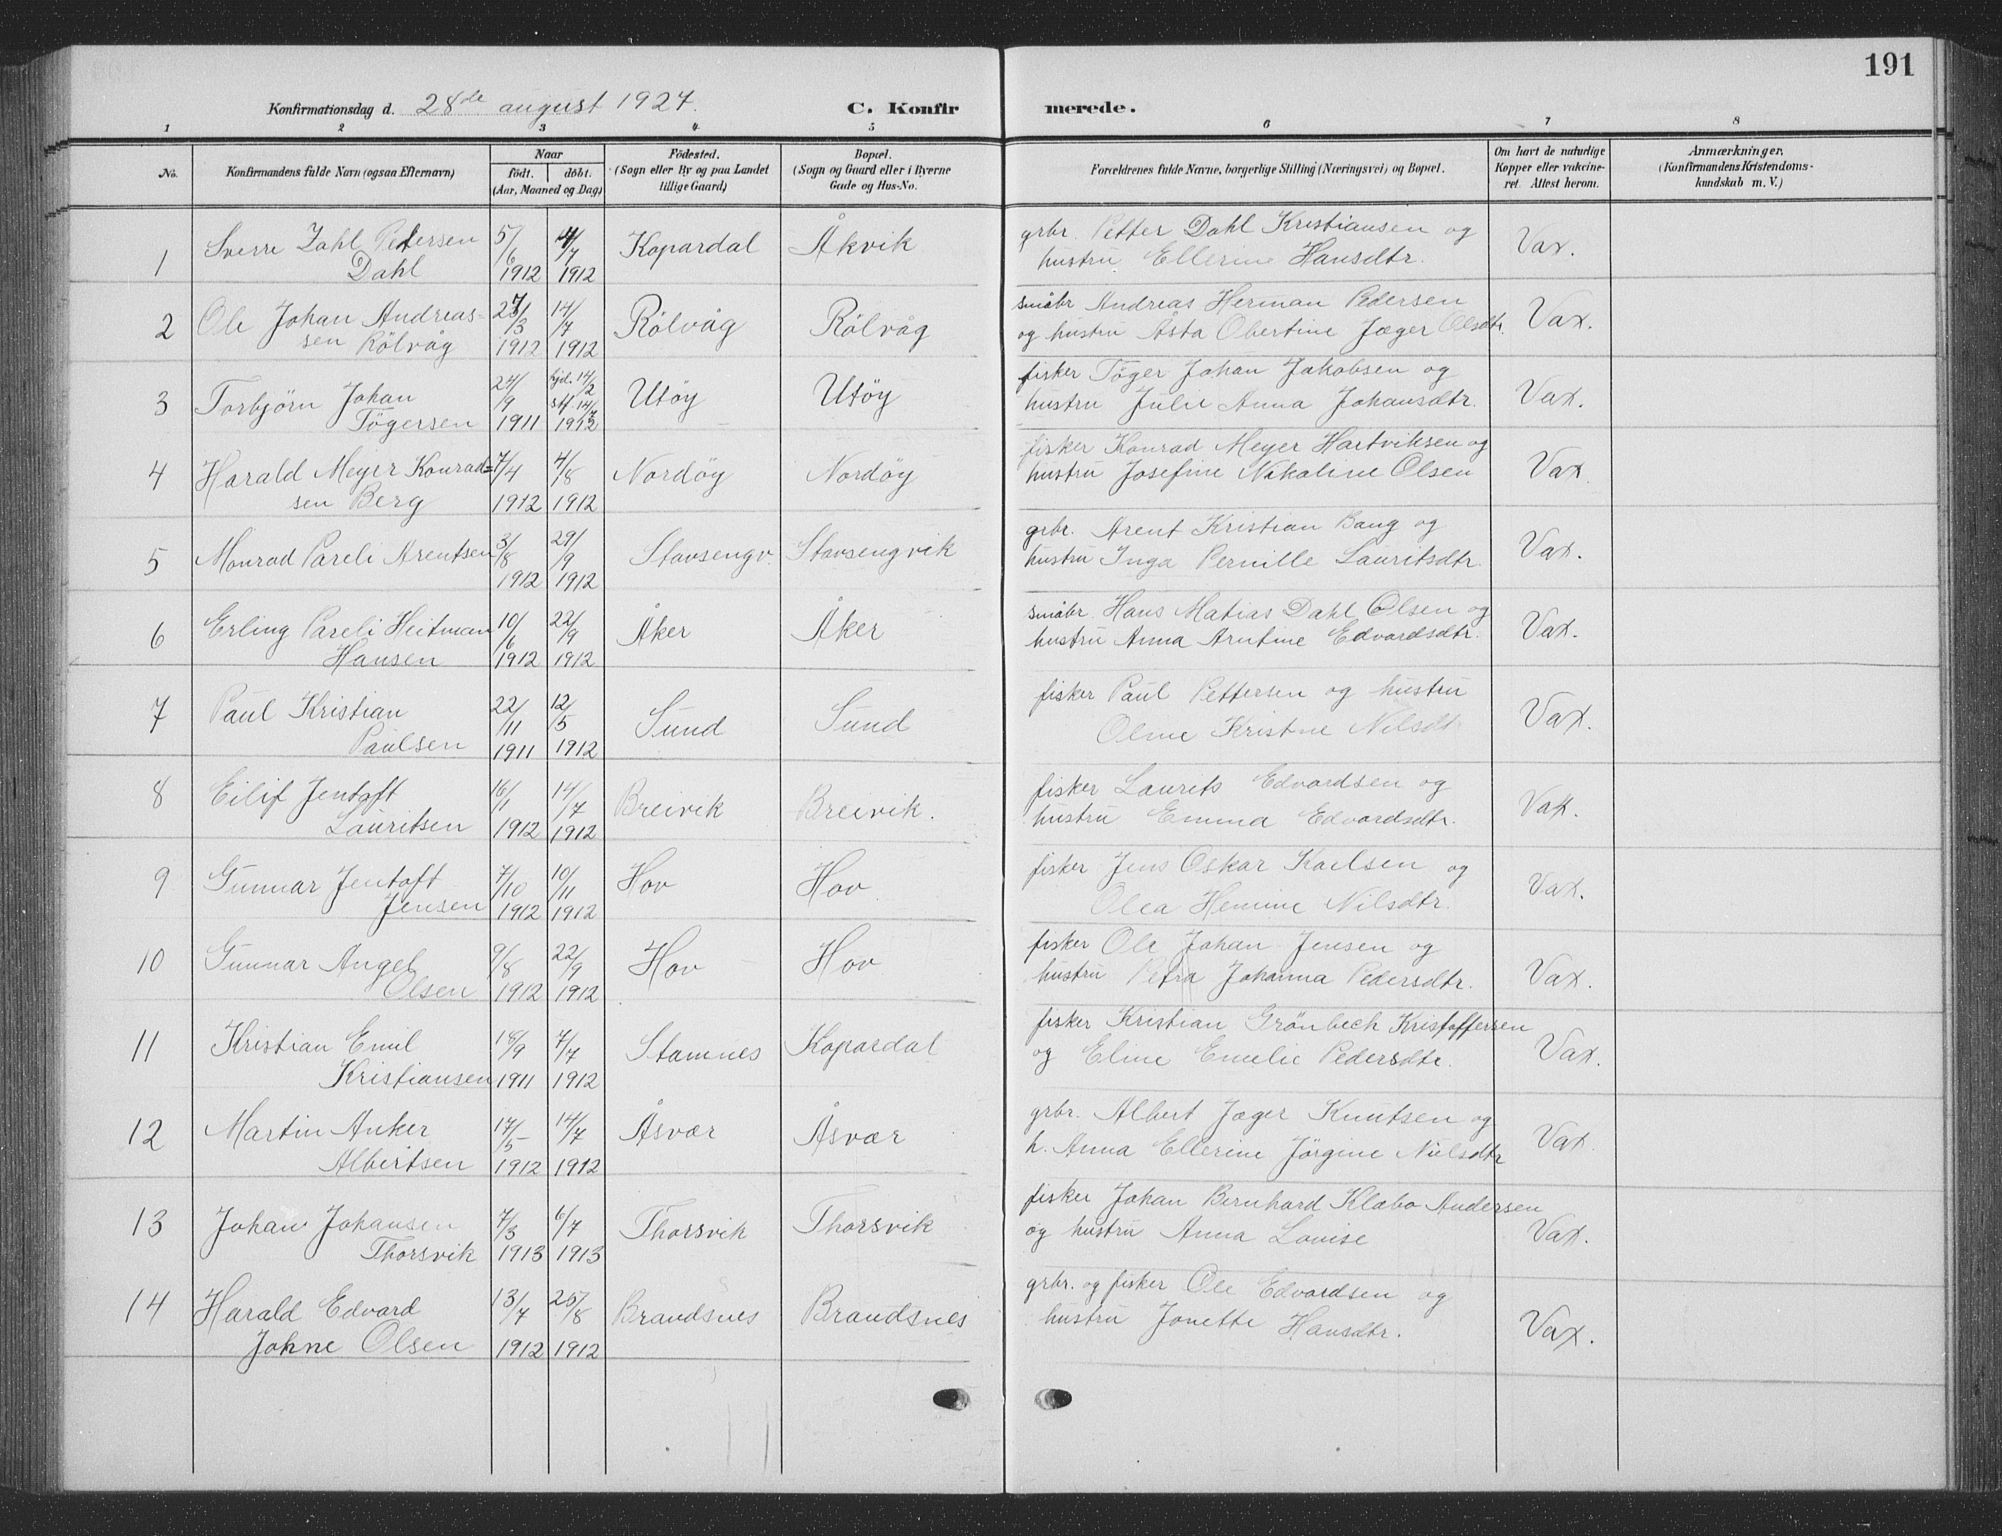 191
Konfirmationsdag d. 28de august 1927. C. Konfirmerede.
1 2 3 4 5 6 7 8
No. Konfirmandens fulde Navn (ogsaa Efternavn) Naar födt. döbt. (Aar, Maaned og Dag) Födested. (Sogn eller By og paa Landet tillige Gaard) Bopæl. (Sogn og Gaard eller i Byerne Gade og Hus-No. Forældrenes fulde Navne, borgerlige Stilling (Næringsvei) og Bopæl. Om havt de naturlige Kopper eller vakcineret. Attest herom. Anmærkninger. (Konfirmandens Kristendomskundskab m. V.)
1 Sverre Dahl Pedersen 5/6 4/7 Kopardal Åkvik grbr. Petter Dahl Kristiansen og Vax.
Dahl 1912 1912 hustru Ellerine Hansdtr.
2 Ole Johan Andreas= 27/3 14/7 Rölvåg Rölvåg småbr Andreas Herman Pedersen Vax.
sen Rölvåg 1912 1912 og hustru Åsta Obertine Jæger Olsdtr.
3 Torbjörn Johan 24/9 hjd. 14/2 Utöy Utöy fisker Töger Johan Jakobsen og Vax.
Tögersen 1911 stf 14/7 1912 hustru Julie Anna Johansdtr.
4 Harald Meyer Konrad= 7/4 4/8 Nordöy Nordöy fisker Konrad Meyer Hartviksen og Vax.
sen Berg 1912 1912 hustru Josefine Nikoline Olsen
5 Monrad Pareli Arentsen 3/8 29/9 Stavsengv. Stavsengvik grbr. Arent Kristian Bang og Vax.
1912 1912 hustru Inga Pernille Lauritsdtr.
6 Erling Pareli Heitman 10/6 22/9 Åker Åker småbr. Hans Matias Dahl Olsen og Vax.
Hansen 1912 1912 hustru Anna Arntine Edvardsdtr.
7 Paul Kristian 22/11 12/5 Sund Sund fisker Paul Pettersen og hustru Vax.
Paulsen 1911 1912 Oline Kristine Nilsdtr
8 Eilif Jentoft 16/1 14/7 Breivik Breivik. fisker Laurits Edvardsen og Vax.
Lauritsen 1912 1912 hustru Emma Edvardsdtr.
9 Gunnar Jentoft 7/10 10/11 Hov Hov fisker Jens Oskar Karlsen og Vax.
Jensen 1912 1912 Olea Hemine Nilsdtr.
10 Gunnar Angel 9/8 22/9 Hov Hov fisker Ole Johan Jensen og Vax.
Olsen 1912 1912 hustru Petra Johanna Pedersdtr.
11 Kristian Emil 18/9 7/7 Stamnes Kopardal fisker Kristian Grönbech Kristoffersen Vax.
Kristiansen 1911 1912 og Eline Emelie Pedersdtr.
12 Martin Anker 17/5 14/7 Åsvær Åsvær grbr. Albert Jæger Knutsen og Vax.
Albertsen 1912 1912 h. Anna Ellerine Jörgine Nielsdtr
13 Johan Johansen 7/3 6/7 Thorsvik Thorsvik fisker Johan Bernhard Klæbo Andersen Vax.
Thorsvik 1913 1913 og hustru Anna Louise
14 Harald Edvard 13/7 25/8 Brandsnes Brandsnes grbr. og fisker Ole Edvardsen og Vax.
Johne Olsen 1912 1912 hustru Jonette Hansdtr.